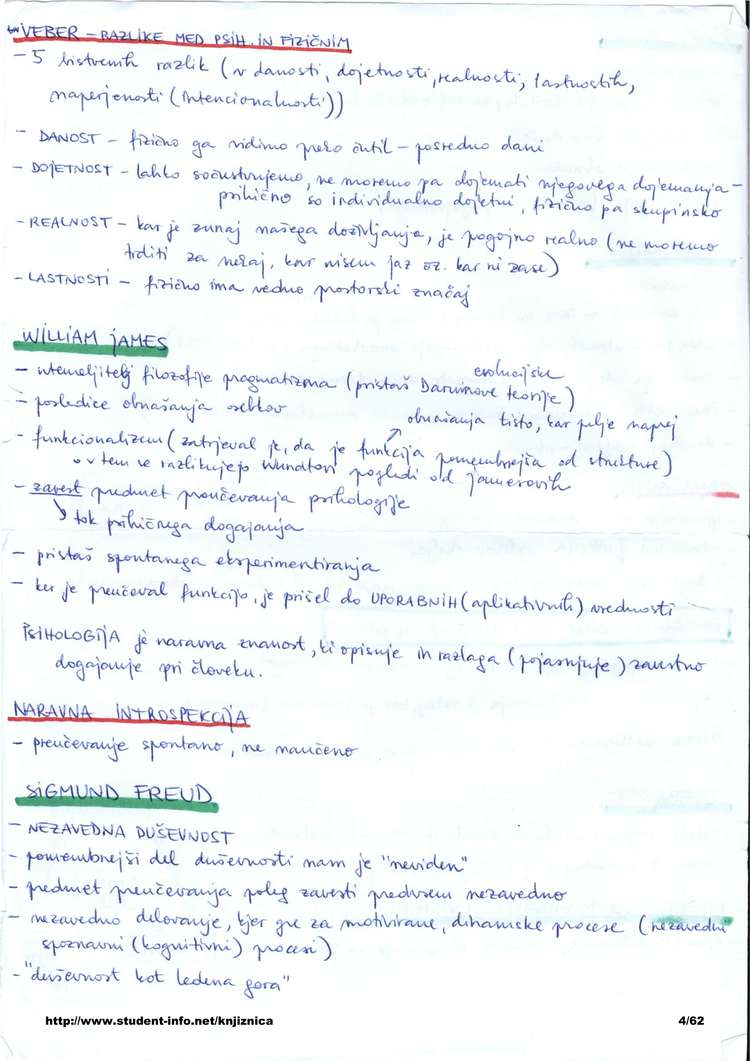 VEBER – RAZLIKE MED PSIH. IN FIZIČNIM
– 5 bistvenih razlik (v danosti, dojetnosti, realnosti, lastnostih,
naperjenosti (intencionalnosti))
– DANOST – fizično ga vidimo preko čutil – posredno dani
– DOJETNOST – lahko sočustvujemo, ne moremo pa dojemati njegovega dojemanja –
psihično so individualno dojetni, fizično pa skupinsko
– REALNOST – kar je zunaj našega doživljanja, je pogojno realno (ne moremo
trditi za nekaj, kar nisem jaz oz. kar ni zase)
– LASTNOSTI – fizično ima vedno prostorski značaj
WILLIAM JAMES
– utemeljitelj filozofije pragmatizma (pristaš Darwinove evolucijske teorije)
– posledice obnašanja osebkov
obnašanja tisto, kar pelje naprej
– funkcionalizem (zatrjeval je, da je funkcija pomembnejša od strukture)
v tem se razlikujejo Wundtovi pogledi od jamesovih
– zavest predmet proučevanja psihologije
↳ tok psihičnega dogajanja
– pristaš spontanega eksperimentiranja
– ker je preučeval funkcijo, je prišel do UPORABNIH (aplikativnih) vrednosti
PSIHOLOGIJA je naravna znanost, ki opisuje in razlaga (pojasnjuje) zavestno
dogajanje pri človeku.
NARAVNA INTROSPEKCIJA
– preučevanje spontano, ne naučeno
SIGMUND FREUD
– NEZAVEDNA DUŠEVNOST
– pomembnejši del duševnosti nam je "neviden"
– predmet preučevanja poleg zavesti predvsem nezavedno
– nezavedno delovanje, kjer gre za motivirane, dinamske procese (nezavedni
spoznavni (kognitivni) procesi)
– "duševnost kot ledena gora"
http://www.student-info.net/knjiznica
4/62